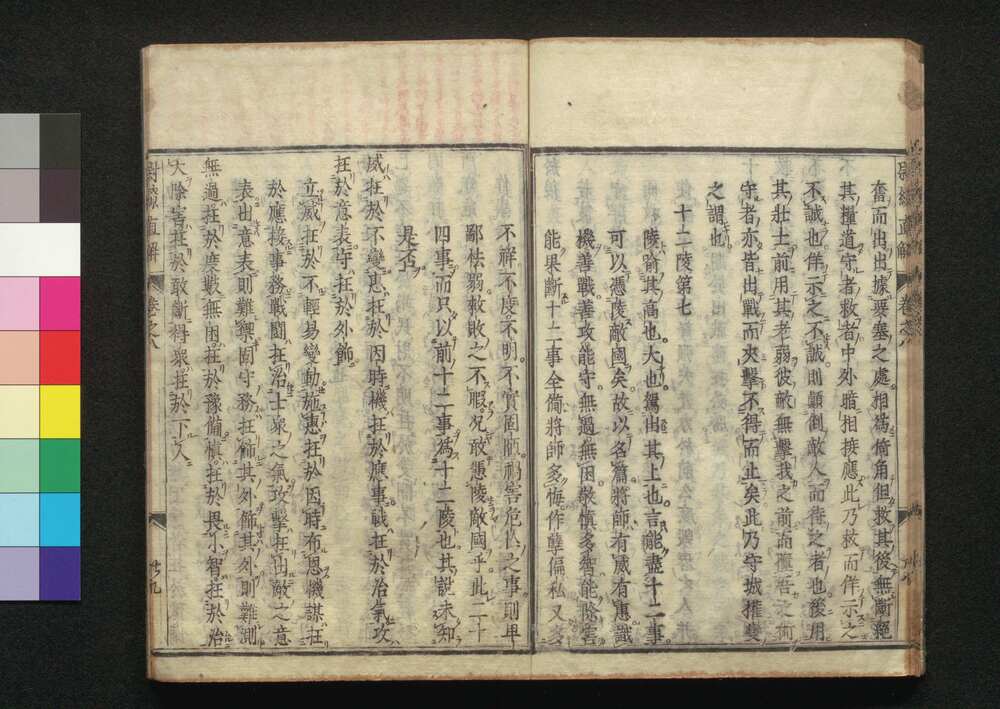 奮而出出據要塞之處相為倚角但救其後無斷絕
其糧道守者救者中外暗相接應此乃救而佯示之
不誠也佯示之不誠則顛倒敵人而待之者也後用
其壯士前用其老弱彼敵無擊我之前而擅吾之術
守者亦皆出戰而夾擊不得而止矣此乃守城權變
之謂也
十二陵第七
陵喻其高也大也駕出其上也言能盡十二事
可以憑陵敵國矣故以名篇將師有威有惠識
機善戰善攻能守無過無困敬慎多智能除害
能果斷十二事全備將師多悔作孽偏私又多
不祥不度不明不實固陋禍害危亡之事則卑
鄙怯弱救敗之不暇况敢憑陵敵國乎此二十
四事而只以前十二事為十二陵也其說未知
是否
威在於不變惠在於因時機在於應事戰在於治氣攻
在於意表守在於外飾
立威在於不輕易變動施惠在於因時布恩機謀在
於應接事務戰鬪在治士衆之氣攻擊在出敵之意
表出意表則難禦固守務在飾其外飾其外則難測
無過在於度數無困在於豫備慎在於畏小智在於治
大除害在於敢斷得衆在於下人
尉繚直解 卷之八 廿九